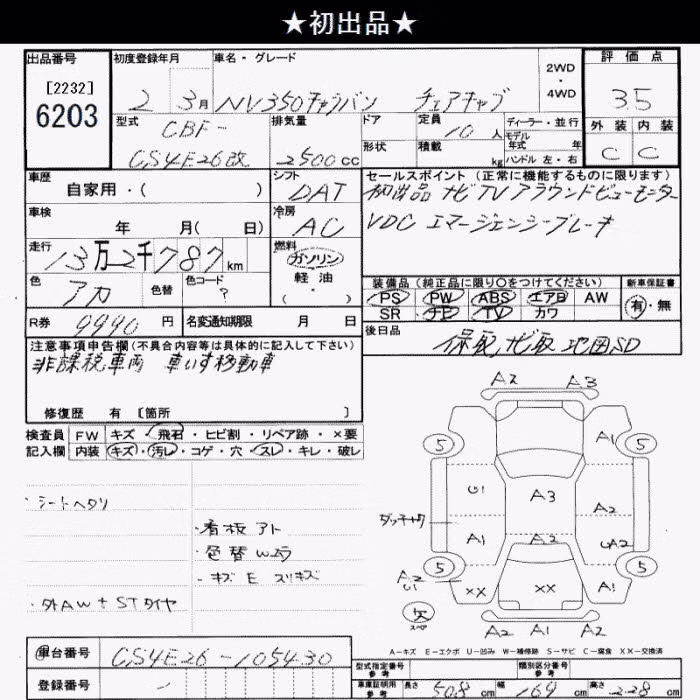 ★初出品★
出品番号
[2232]
6203
初度登録年月
2 3月
車名・グレード
NV350キャラバン チェアキャブ
2WD
・
4WD
評価点
3.5
型式
CBF-
CS4E26改
排気量
2500cc
ドア
形状
定員
10人
積載
kg
ディーラー・並行
モデル
年式 年
ハンドル 左・右
外装 内装
C C
車歴
自家用・( )
シフト
DAT
セールスポイント(正常に機能するものに限ります)
初出品 ナビ TV アラウンドビューモニター
VDC エマージェンシーブレーキ
車検
年 月( 日)
冷房
AC
走行
13万2千787km
燃料
ガソリン
軽油
( )
色
アカ
色替
色コード
?
装備品(純正品に限り○をつけてください)
PS PW ABS エアB AW
SR ナビ TV カワ
新車保証書
有・無
R券
9990円
名変通知期限 月 日
後日品
保取 ナビ取 地図SD
注意事項申告欄(不具合内容等は具体的に記入して下さい)
非課税車両 車いす移動車
修復歴 有 [箇所 ]
検査員
記入欄
FW キズ・飛石・ヒビ割・リペア跡・×要
内装 キズ・汚レ・コゲ・穴・スレ・キレ・破レ
・シートヘタリ
・看板アト
・色替Wムラ
・キズ E スリキズ
・外AW+STタイヤ
A2 A3
5 A1 5
U1 A3 A2
ダッチャク
A1 A2 UA2
5 5
A2
U1
XX XX A1
欠
スペ
A2 A1 A2
A-キズ E-エクボ U-凹み W-補修跡 S-サビ C-腐食 XX-交換済
車台番号
CS4E26-105430
登録番号
型式指定番号
参考
類別区分番号
参考
車庫証明用
参考
長さ 508cm 幅 169cm 高さ 228cm